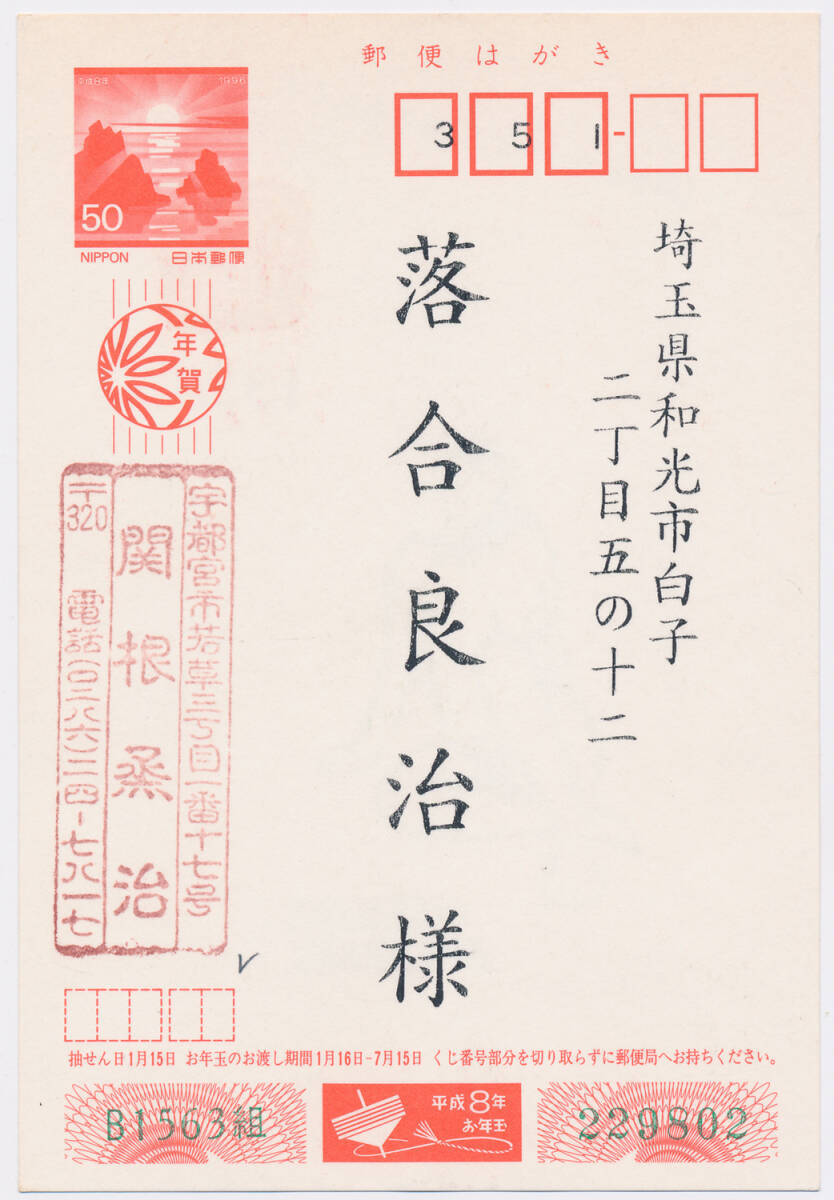 郵便はがき
平成8年 1996
50
NIPPON 日本郵便
351-
埼玉県和光市白子
二丁目五の十二
落合良治様
年賀
宇都宮市若草三丁目一番十七号
関根烝治
〒320 電話(〇二八六)二四-七八一七
抽せん日1月15日 お年玉のお渡し期間1月16日-7月15日 くじ番号部分を切り取らずに郵便局へお持ちください。
B1563組
平成8年
お年玉
229802